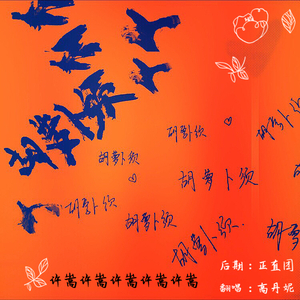 胡萝卜须
胡萝卜须
胡萝卜须
胡萝卜须
胡萝卜须
胡萝卜须
胡萝卜须
胡萝卜须
胡萝
后期：正直团
许嵩许嵩许嵩许嵩许嵩
翻唱：高丹妮